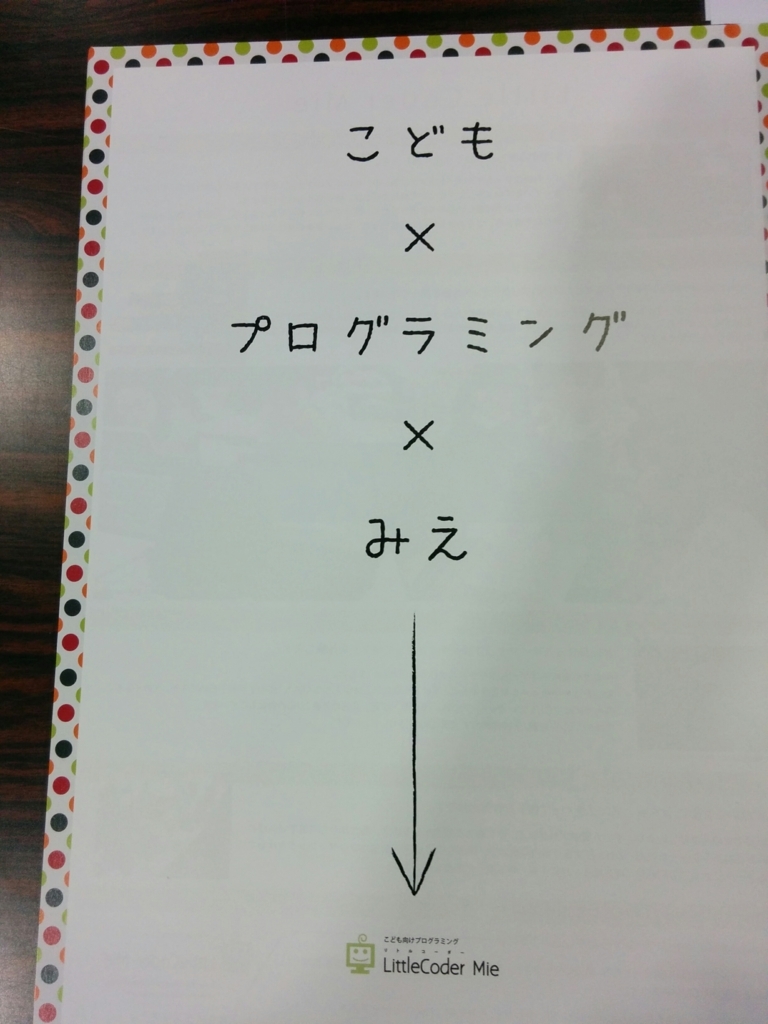 こども
×
プログラミング
×
みえ
こども向けプログラミング
リトルコーダー
LittleCoder Mie